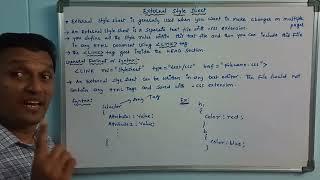 External Style Sheet
External style sheet is generally used when you want to make changes on multiple pages
An External Style sheet is a separate text file with .css extension.
you define all the style rules within this text file and then you can include this file
in any HTML document using <LINK> tag
The <LINK> tag goes inside the HEAD section.
General Format or Syntax:-
<LINK rel="stylesheet" type="text/css" href="filename.css">
An External style sheet can be written in any text editor. The file should not
contain any HTML tags and saved with .css extension.
Syntax:
Selector Any Tag
{
Attribute1: Value;
Attribute2: Value;
}
Ex:
h1
{
color: red;
}
h2
{
color: blue;
}